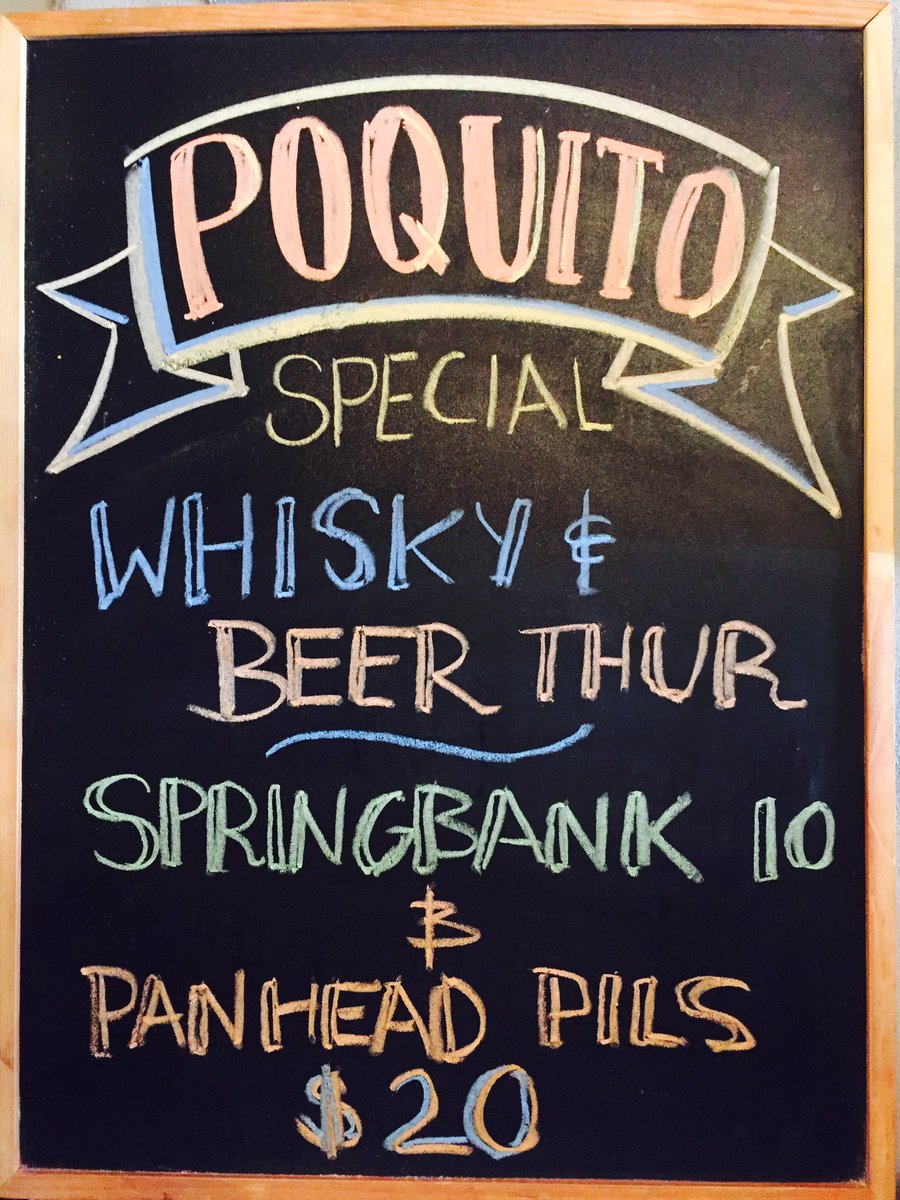 POQUITO
SPECIAL
WHISKY &
BEER THUR
SPRINGBANK 10
&
PANHEAD PILS
$20